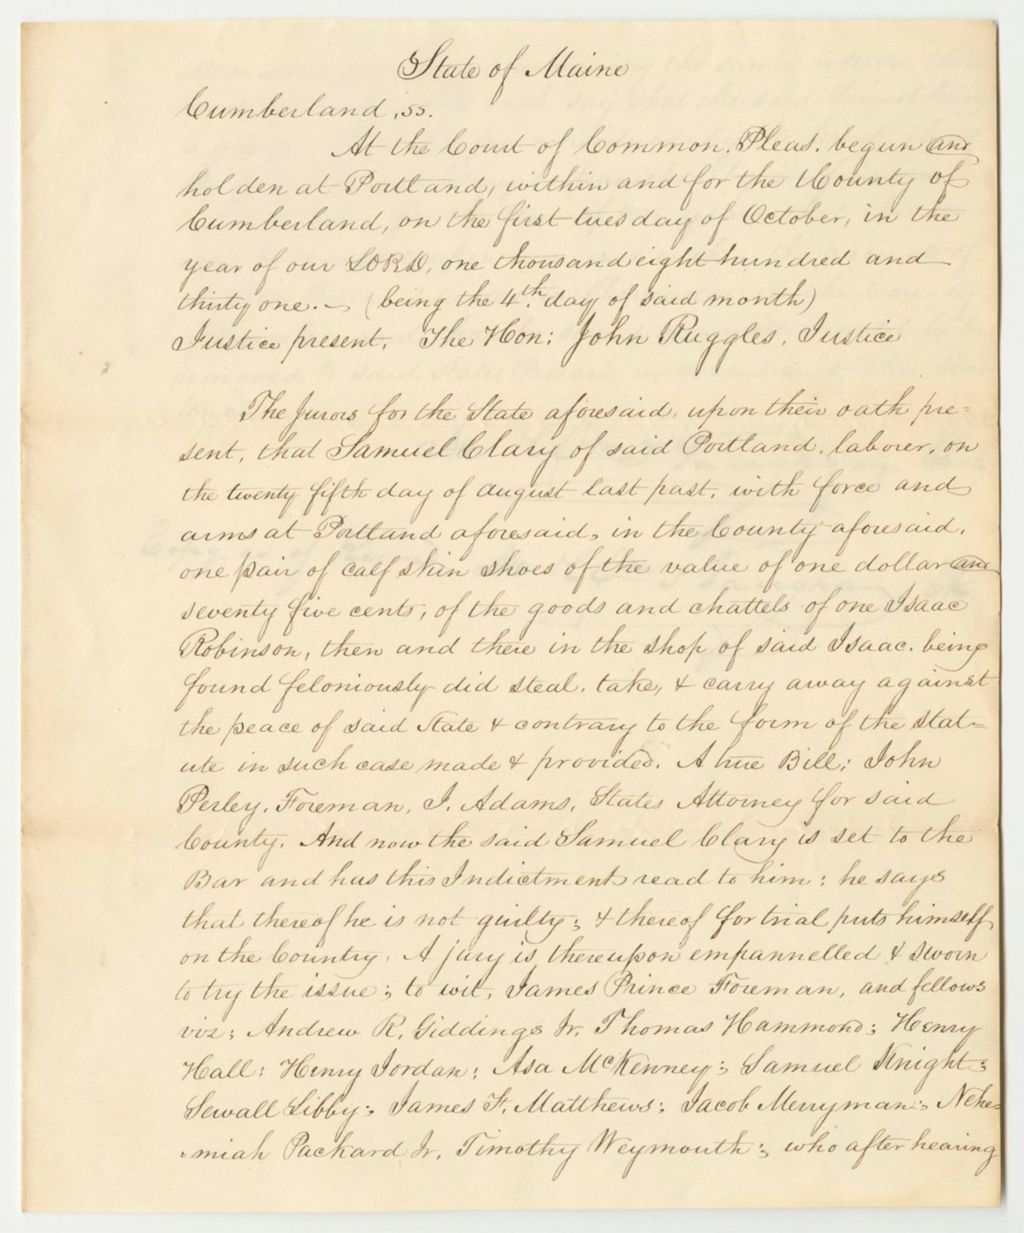 State of Maine
Cumberland, ss.
At the Court of Common. Pleas. begun and
holden at Portland, within and for the County of
Cumberland, on the first tuesday of October, in the
year of our LORD, one thousand eight hundred and
thirty one. ~ (being the 4th. day of said month)
Justice present. The Hon: John Ruggles, Justice
The Jurors for the State aforesaid, upon their oath pre=
sent, that Samuel Clary of said Portland, laborer, on
the twenty fifth day of august last past, with force and
arms at Portland aforesaid, in the County aforesaid,
one pair of calf skin shoes of the value of one dollar and
seventy five cents, of the goods and chattels of one Isaac
Robinson, then and there in the shop of said Isaac, being
found feloniously did steal, take, & carry away against
the peace of said State & contrary to the form of the stat=
ute in such case made & provided. A true Bill: John
Perley, Foreman, J. Adams, States Attorney for said
County. And now the said Samuel Clary is set to the
Bar and has this Indictment read to him; he says
that thereof he is not guilty; & thereof for trial puts himself
on the Country. A jury is thereupon empannelled & sworn
to try the issue; to wit, James Prince Foreman, and fellows
viz; Andrew R. Giddings Jr. Thomas Hammond; Henry
Hall; Henry Jordan; Asa McKenney; Samuel Knight;
Sewall Libby; James F. Matthews; Jacob Merryman; Nehe=
=miah Packard Jr. Timothy Weymouth; who after hearing